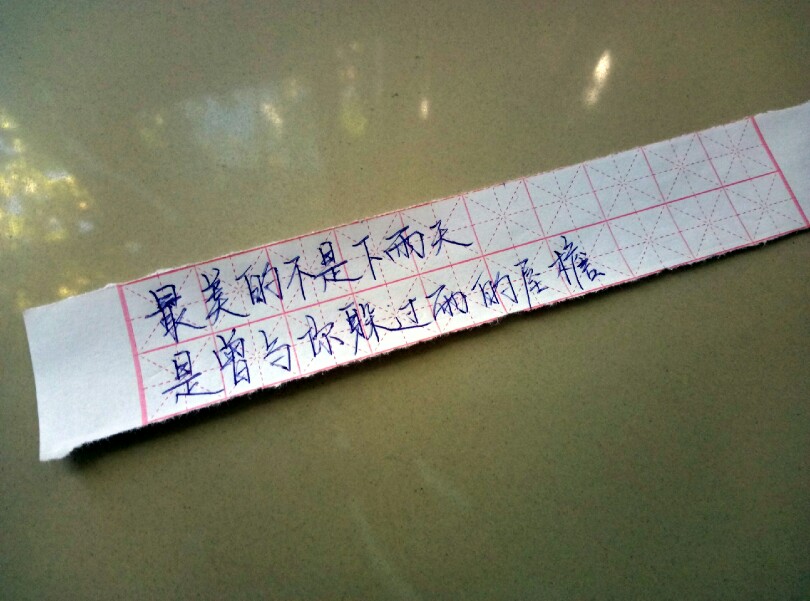 最美的不是下雨天
是曾与你躲过雨的屋檐